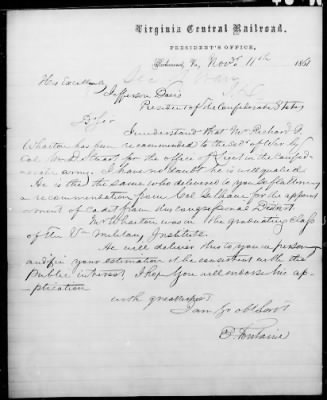 Virginia Central Railroad.
PRESIDENT'S OFFICE,
Richmond, Va., Nov 11th 1861
His Excellency
Jefferson Davis
President of the Confederate States
Dr Sir
I understand that Mr Richard G.
Wharton has been recommended to the Sec. of War by
Col for the office of Lieut in the Confed-
erate army. I have no doubt he is well qualified
He is the same who delivered to you
a recommendation from Col for the appoint
ment of cadet from his congressional District
Mr Wharton was in the graduating class
of the Va Military Institute.
He will deliver this to you in person
and if in your estimation it be consistent with the
public interest I hope you will endorse his ap-
plication
with great respect
I am Yr ob Servt
E Fontaine